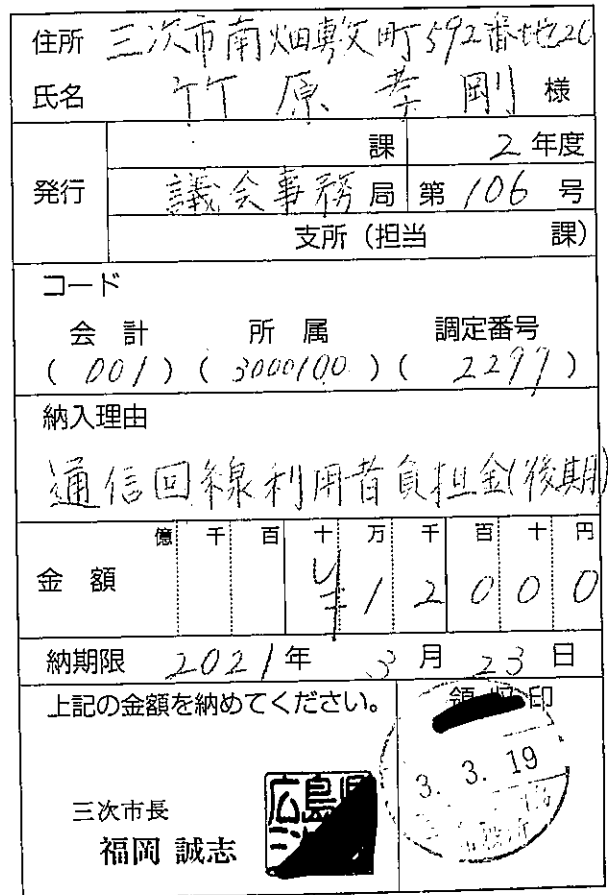 住所 三次市南畑敷町592番地20
氏名 竹原孝剛 様
課 2年度
発行 議会事務局 第106号
支所(担当 課)
コード
会計 所属 調定番号
(001)(3000100)(2297)
納入理由
通信回線利用者負担金(後期)
億 千 百 十 万 千 百 十 円
金額 ¥12000
納期限 2021年3月23日
上記の金額を納めてください。 領収印
3. 3. 19
三次市長
福岡 誠志
広島県